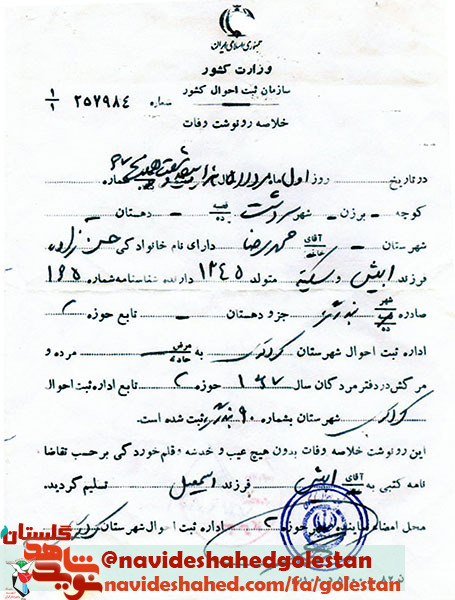 جمهوری اسلامی ایران
وزارت کشور
سازمان ثبت احوال کشور
شماره ۲۵۷۹۸۴ ۱/۱
خلاصه رونوشت وفات
در تاریخ روز اول ماه مرداد سال هزار سیصد شصت ۶۷ شماره
کوچه - برزن - شهر سردشت قصبه ده - دهستان -
شهرستان - آقای خانم حمیدرضا دارای نام خانوادگی حسن زاده
فرزند و سکینه متولد ۱۳۴۵ دارنده شناسنامه شماره ۱۶۵
صادره شهر قصبه ده بندرگز جزو دهستان - تابع حوزه ۲
اداره ثبت احوال شهرستان کردکوی به مرض حادثه مرده و
مرگش در دفتر مردگان سال ۱۳۶۷ حوزه ۲ تابع اداره ثبت احوال
کردکوی شهرستان بشماره ۹۰ بندرگز ثبت شده است.
این رونوشت خلاصه وفات بدون هیچ عیب و خدشه و قلم خوردگی بر حسب تقاضا
نامه کتبی به آقای فرزند اسمعیل تسلیم گردید.
محل امضاء نماینده حوزه ۲ اداره ثبت احوال شهرستان کردکوی
نوید شاهد گلستان
@navideshahedgolestan
navideshahed.com/fa/golestan